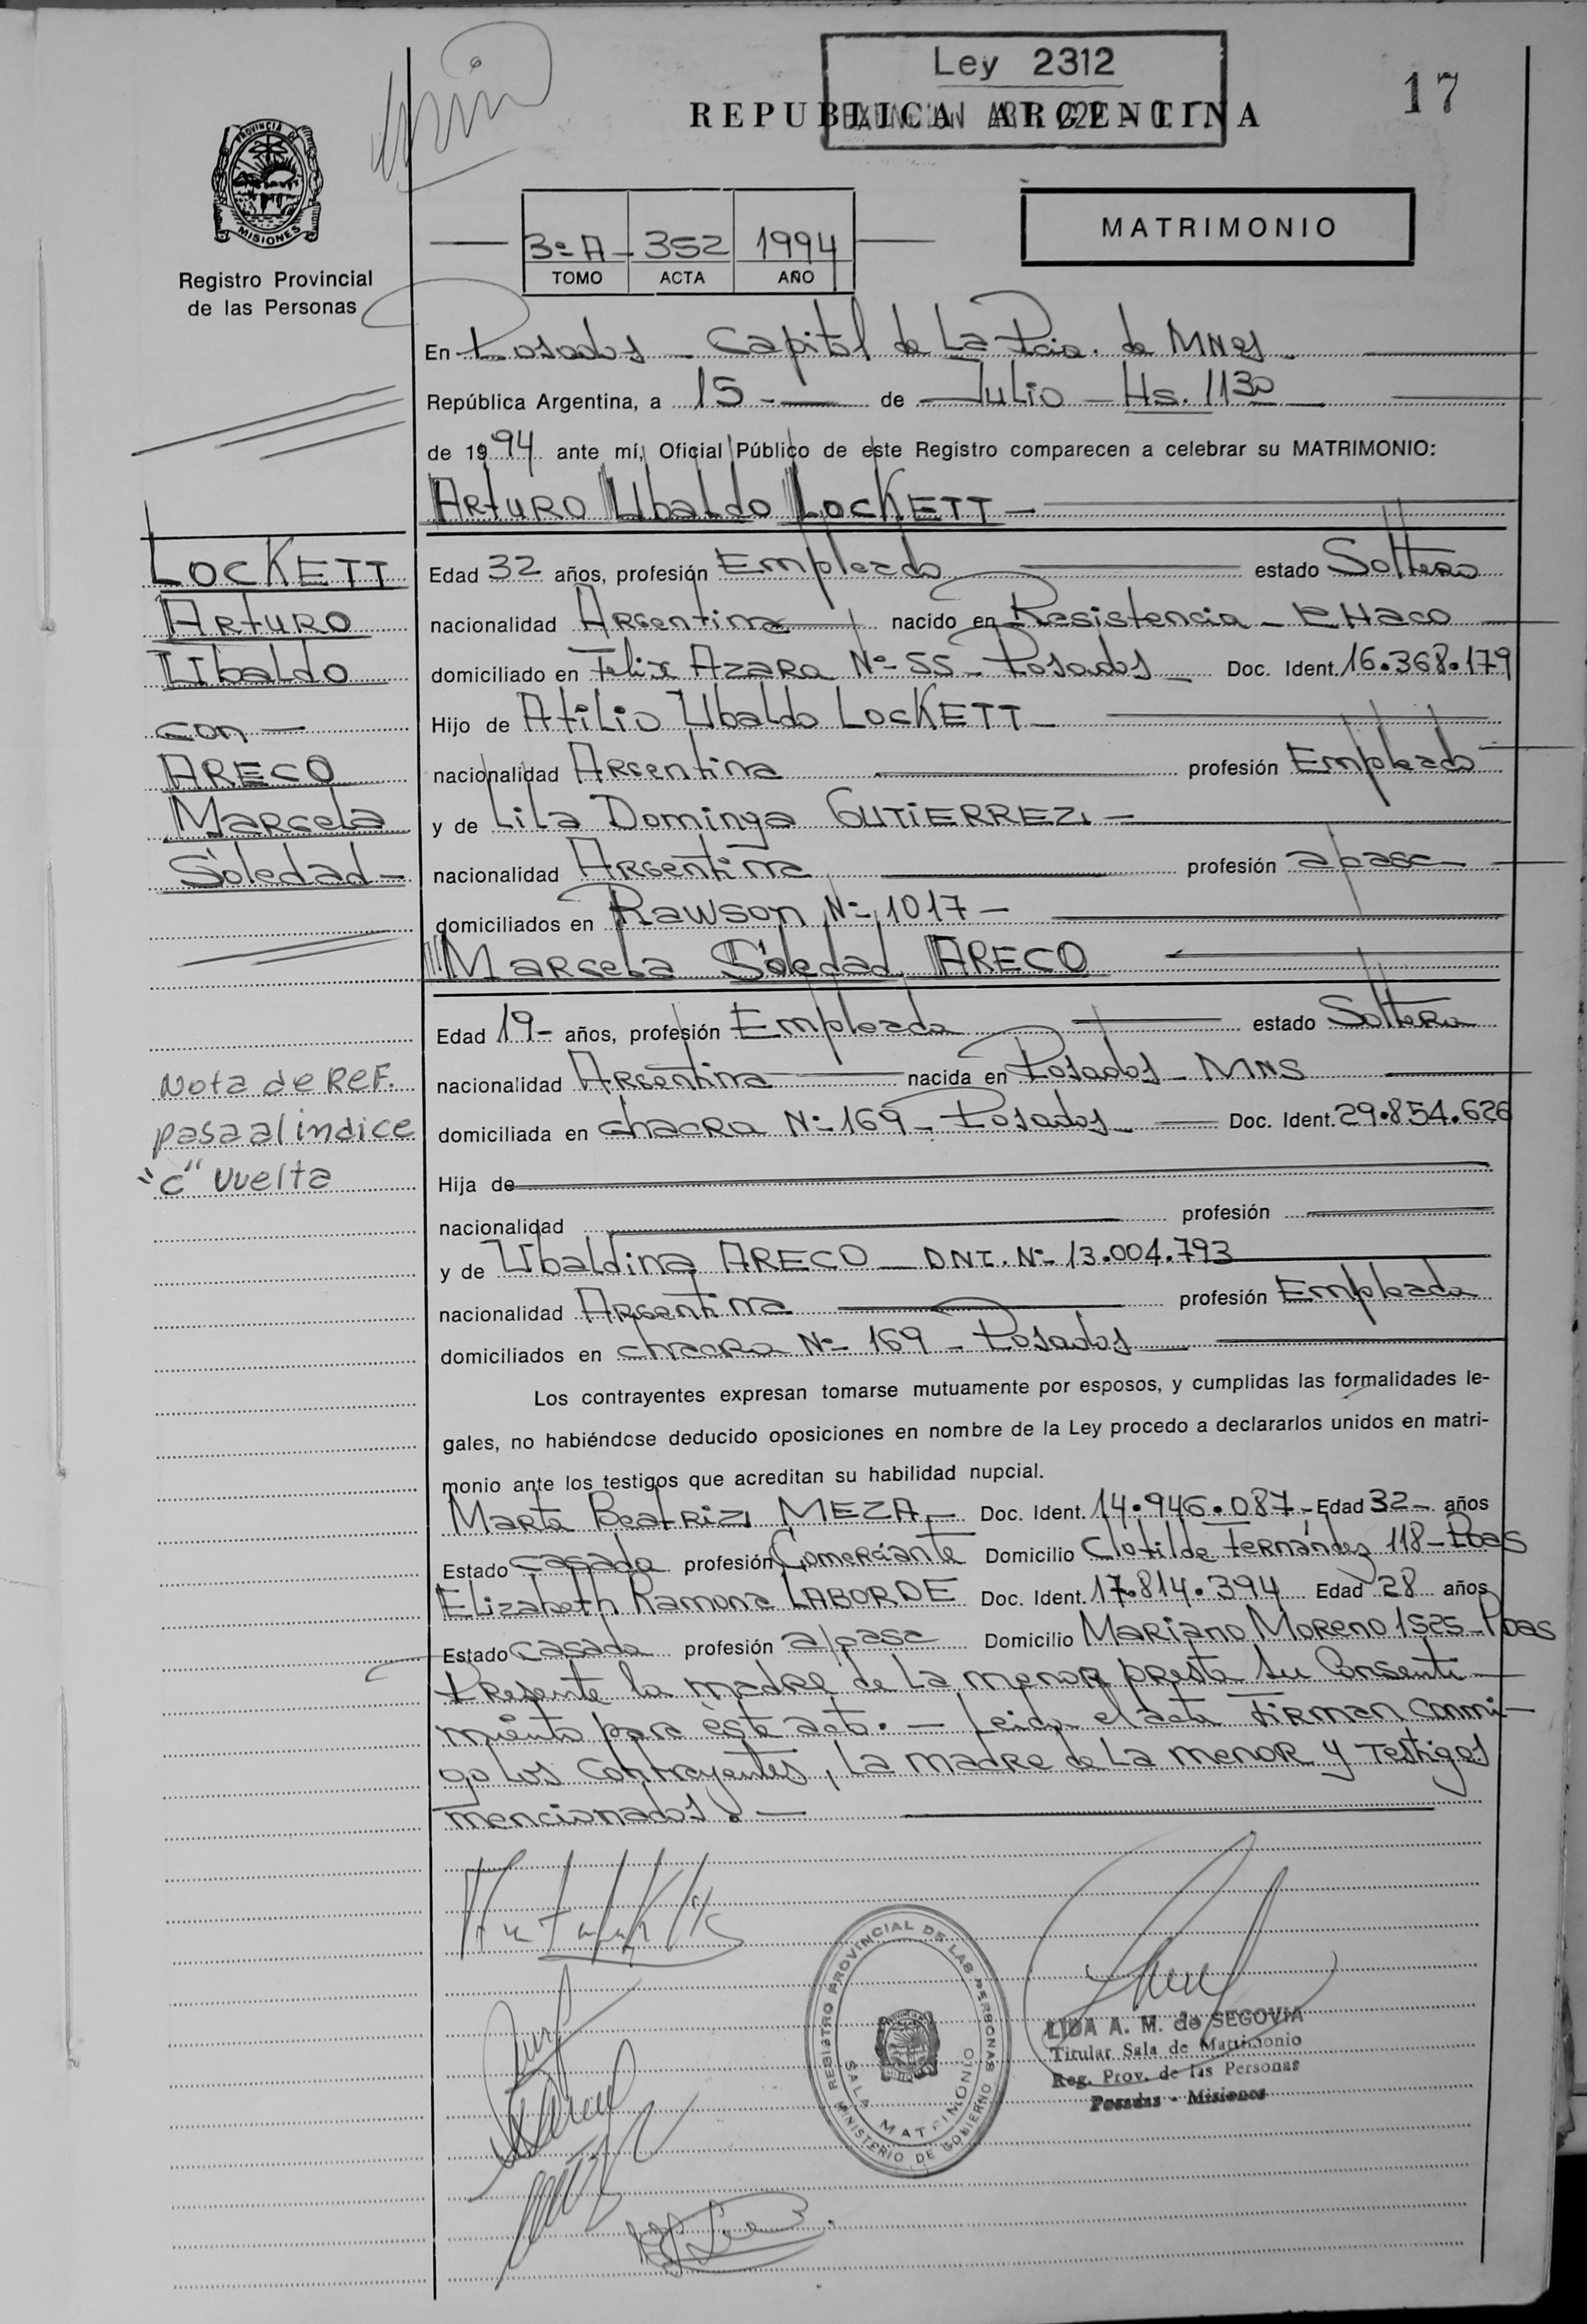 Ley 2312
REPUBLICA ARGENTINA
17
PROVINCIA DE
MISIONES
Registro Provincial
de las Personas
3º A - 352 1994
TOMO ACTA AÑO
MATRIMONIO
En Posadas - Capital de La Pcia. de MNes -
República Argentina, a 15 - de Julio - Hs. 1130
de 1994 ante mí, Oficial Público de este Registro comparecen a celebrar su MATRIMONIO:
Arturo Ubaldo LOCKETT -
LOCKETT
Arturo
Ubaldo
con -
ARECO
Marcela
Soledad -
Edad 32 años, profesión Empleado estado Soltero
nacionalidad Argentina nacido en Resistencia - CHaco
domiciliado en Felix Azara Nº 55 - Posadas - Doc. Ident. 16.368.179
Hijo de Atilio Ubaldo LOCKETT -
nacionalidad Argentina profesión Empleado
y de Lila Dominga GUTIERREZ -
nacionalidad Argentina profesión a/casa
domiciliados en Rawson Nº 1017 -
Marcela Soledad ARECO
Edad 19 - años, profesión Empleada estado Soltera
nacionalidad Argentina nacida en Posadas - MNS
domiciliada en chacra Nº 169 - Posadas - Doc. Ident. 29.854.626
Nota de Ref.
pasa al indice
"c" vuelta
Hija de
nacionalidad profesión
y de Ubaldina ARECO - DNI. Nº 13.004.793
nacionalidad Argentina profesión Empleada
domiciliados en chacra Nº 169 - Posadas
Los contrayentes expresan tomarse mutuamente por esposos, y cumplidas las formalidades le-
gales, no habiéndose deducido oposiciones en nombre de la Ley procedo a declararlos unidos en matri-
monio ante los testigos que acreditan su habilidad nupcial.
Marta Beatriz MEZA - Doc. Ident. 14.946.087 - Edad 32 - años
Estado casada profesión Comerciante Domicilio Clotilde Fernández 118 - Pdas
Elizabeth Ramona LABORDE Doc. Ident. 17.814.394 Edad 28 años
Estado casada profesión a/casa Domicilio Mariano Moreno 1525 - Pdas
Presente la madre de La menor presta su Consenti-
miento para éste acto. - Leida el acta Firman conmi-
go Los contrayentes, La madre de La menor y Testigos
mencionados. -
REGISTRO PROVINCIAL DE LAS PERSONAS
SALA MATRIMONIO
MINISTERIO DE GOBIERNO
LIDA A. M. de SEGOVIA
Titular Sala de Matrimonio
Reg. Prov. de las Personas
Posadas - Misiones